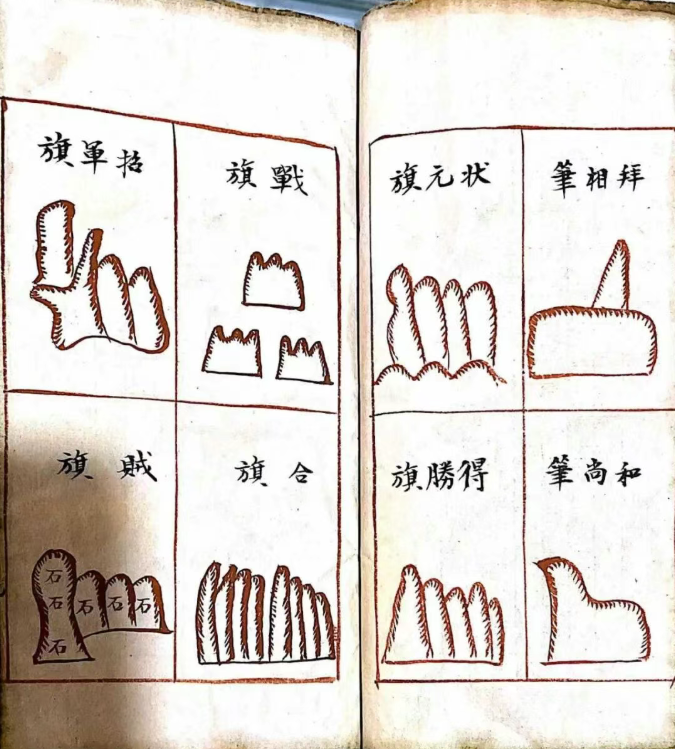 拜相筆
状元旗
和尚筆
得勝旗
戰旗
招軍旗
合旗
賊旗
石
石
石
石
石
石